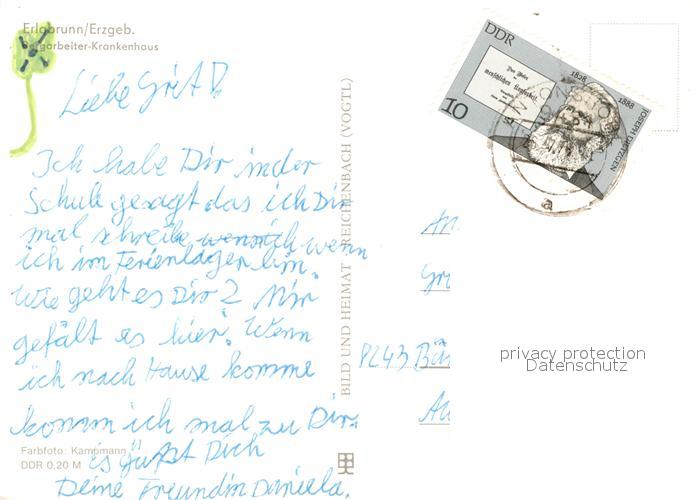 Erlabrunn/Erzgeb.
Bergarbeiter-Krankenhaus
Liebe Grit!
Ich habe Dir in der
Schule gesagt das ich Dir
mal schreibe wenn ich wenn
ich im Ferienlager bin.
Wie geht es Dir? Mir
gefält es hier. Wenn
ich nach Hause komme
komm ich mal zu Dir.
Es grüßt Dich
Deine Freundin Daniela.
Farbfoto: Kampmann
DDR 0,20 M
BILD UND HEIMAT REICHENBACH (VOGTL)
DDR
Das Wesen
der
menschlichen Kopfarbeit.
10
1828
1888
JOSEPH DIETZGEN
a
An
Gr
8243 Bär
privacy protection
Datenschutz